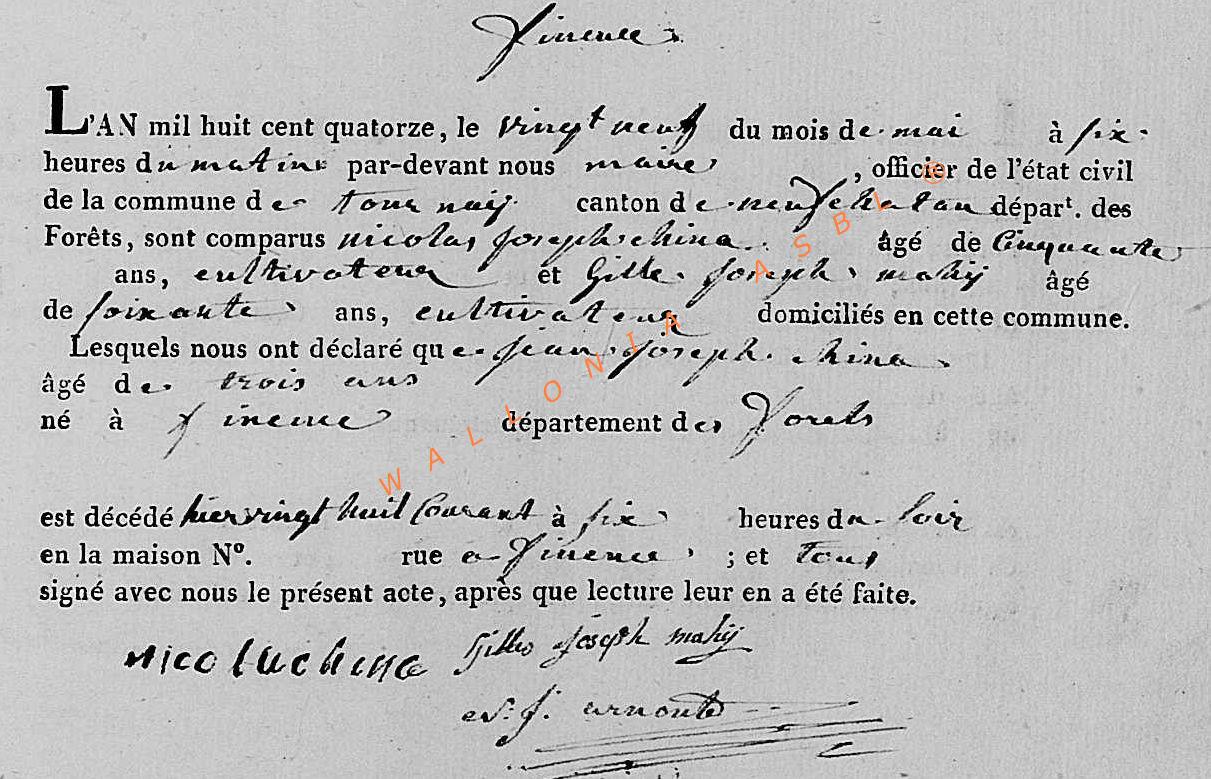 Finence
L'AN mil huit cent quatorze, le vingt neuf du mois de mai à six
heures du matin par-devant nous maire, officier de l'état civil
de la commune de tournaij canton de neufchatau départ. des
Forêts, sont comparus nicolas joseph china âgé de Cinquante
ans, cultivateur et Gille joseph mahij âgé
de soixante ans, cultivateur domiciliés en cette commune.
Lesquels nous ont déclaré que jean joseph china
âgé de trois ans
né à finence département des Forets
est décédé hier vingt huit Courant à six heures du soir
en la maison N°. rue a finence ; et tous
signé avec nous le présent acte, après que lecture leur en a été faite.
nicoluchina Gilles Joseph mahij
j. arnould
WALLONIA ASBL ®